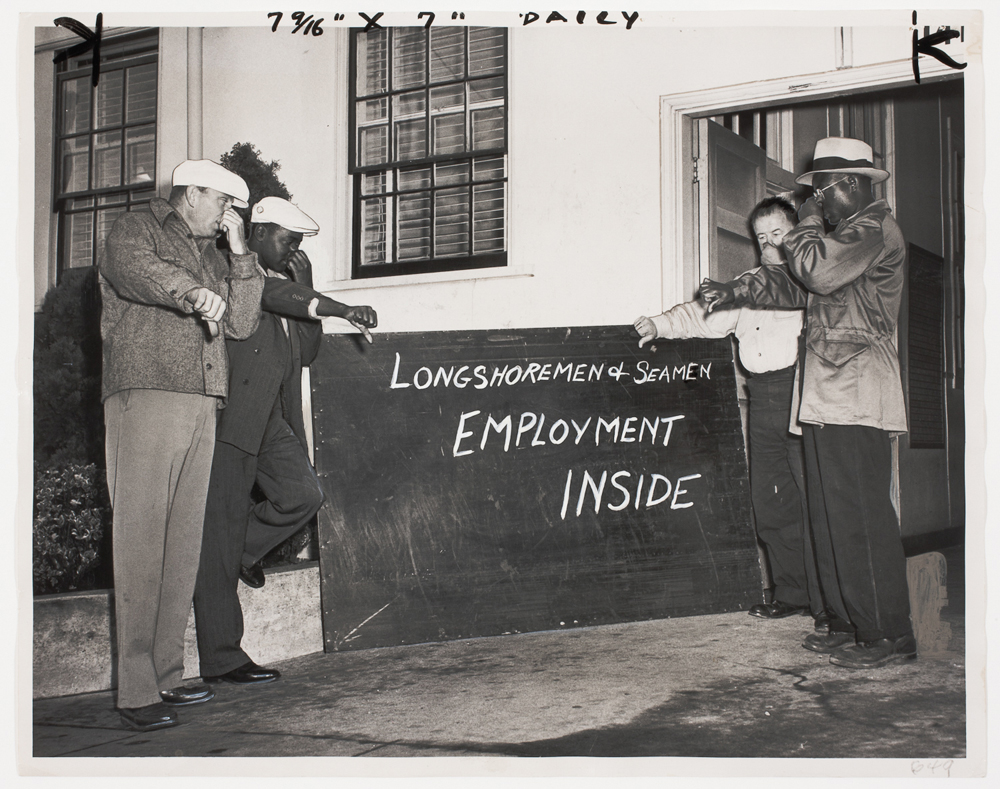 7 9/16" X 7" DAILY
LONGSHOREMEN & SEAMEN
EMPLOYMENT
INSIDE